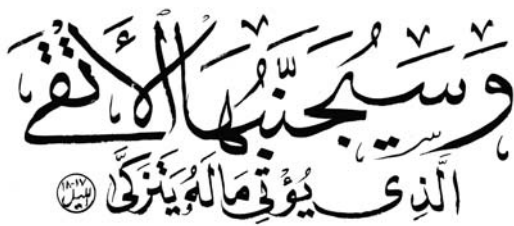 وَسَيُجَنَّبُهَا الْأَتْقَى
الَّذِي يُؤْتِي مَالَهُ يَتَزَكَّى
الليل ١٧-١٨